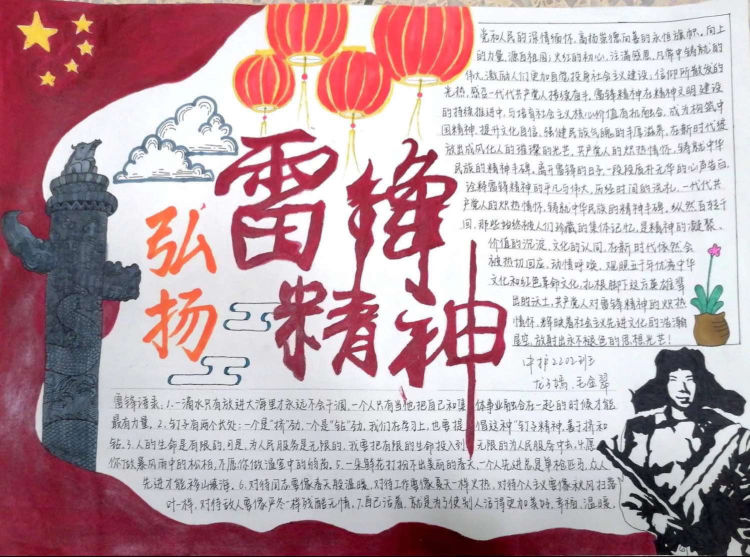 弘扬
雷锋
精神
党和人民的深情缅怀,高扬崇德向善的永恒旗帜。向上
的力量,源自祖国;火红的初心,注满感恩。凡常中铸就的
伟大,激励人们更加自觉投身社会主义建设。信仰所散发的
光热,感召一代代共产党人接续奋斗。雷锋精神在精神文明建设
的持续推进中,与培育社会主义核心价值有机融合,成为构筑中
国精神、提升文化自信、强健民族气魄的丰厚滋养。在新时代绽
放出成风化人的璀璨的光芒。共产党人的炽热情怀,铸就中华
民族的精神丰碑。离开雷锋的日子,一段段质朴无华的心声告白,
诠释雷锋精神的平凡与伟大,历经时间的洗礼,一代代共
产党人的炽热情怀,铸就中华民族的精神丰碑。纵然百转千
回,那些始终被人们珍藏的集体记忆,是精神的凝聚、
价值的沉淀、文化的认同,在新时代依然会
被热切回应、动情呼唤。观照五千年优秀中华
文化和红色革命文化,扎根脚下这方英雄辈
出的沃土,共产党人对雷锋精神的炽热
情怀,辉映着社会主义先进文化的浩瀚
星空,放射出永不褪色的思想光芒!
中护2202班
毛金翠
雷锋语录:1.一滴水只有放进大海里才永远不会干涸,一个人只有当他把自己和集体事业融合在一起的时候才能
最有力量。2.钉子有两个长处:一个是"挤"劲,一个是"钻"劲,我们在学习上,也要提倡这种"钉子"精神,善于挤和
钻。3.人的生命是有限的,可是,为人民服务是无限的,我要把有限的生命投入到无限的为人民服务中去。4.愿
你做暴风雨中的松柏,不愿你做温室中的弱苗。5.一朵鲜花打扮不出美丽的春天,一个人先进总是单枪匹马,众人
先进才能移山填海。6.对待同志要像春天般温暖,对待工作要像夏天一样火热,对待个人主义要像秋风扫落
叶一样,对待敌人要像严冬一样残酷无情。7.自己活着,就是为了使别人活得更加美好、幸福、温暖。